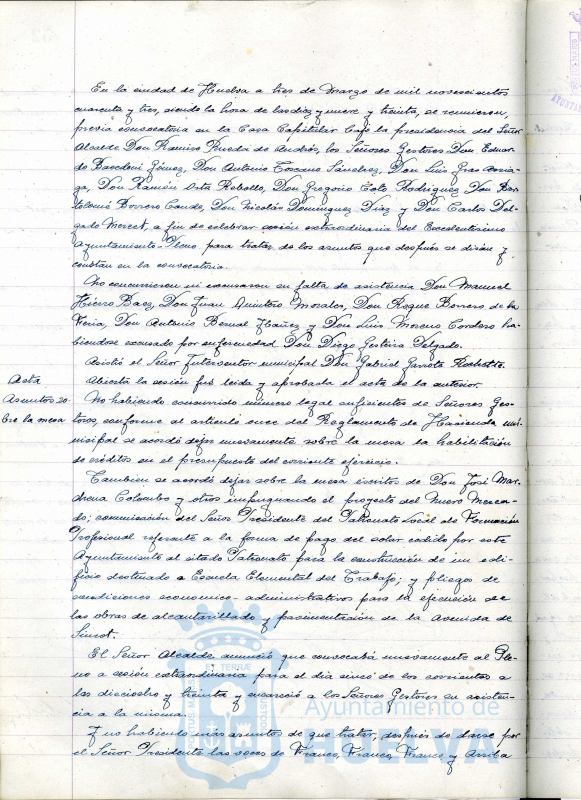 En la ciudad de Huelva a tres de Marzo de mil novecientos
cuarenta y tres, siendo la hora de las diez y nueve y treinta, se reunieron,
previa convocatoria en la Casa Capitular bajo la presidencia del Señor
Alcalde Don Ramiro Rueda de Andrés, los Señores Gestores Don Eduar-
do Bandoni Gómez, Don Antonio Toscano Sánchez, Don Luis Gras
Don Ramón Orta Rebollo, Don Gregorio Coto Rodriguez, Don Bar-
tolomé Borrero Conde, Don Nicolás Dominguez Diaz y Don Carlos Del-
gado a fin de celebrar sesión extraordinaria del Excelentísimo
Ayuntamiento Pleno para tratar de los asuntos que después se dirán y
constan en la convocatoria.
No concurrieron ni excusaron su falta de asistencia Don Manuel
Hierro Baez, Don Juan Quintero Morales, Don Roque Borrero de la
Feria, Don Antonio Bernal Ibañez y Don Luis Moreno Cordero ha-
biendose excusado por enfermedad Don Diego Delgado.
Asistió el Señor Interventor municipal Don Gabriel Garrote
Acta
Abierta la sesión fué leida y aprobada el acta de la anterior.
Asuntos so-
bre la mesa
No habiendo concurrido número legal suficientes de Señores Ges-
tores, conforme al articulo once del Reglamento de Hacienda mu-
nicipal se acordó dejar nuevamente sobre la mesa la habilitación
de créditos en el presupuesto del corriente ejercicio.
Tambien se acordó dejar sobre la mesa escritos de Don José Mar-
chena Colombo y otros impugnando el proyecto del Nuevo Merca-
do; comunicación del Señor Presidente del Patronato Local de Formación
Profesional referente a la forma de pago del solar cedido por este
Ayuntamiento al citado Patronato para la construcción de un edi-
ficio destinado a Escuela Elemental del Trabajo; y pliegos de
condiciones economico-administrativas para la ejecución de
las obras de alcantarillado y pavimentación de la Avenida de
El Señor Alcalde anunció que convocaba nuevamente al Ple-
no a sesión extraordinaria para el dia cinco de los corrientes a
las dieciocho y treinta y encareció a los Señores Gestores su asisten-
cia a la misma.
Y no habiendo más asuntos de que tratar, después de darse por
el Señor Presidente las voces de Franco, Franco, Franco y Arriba
Ayuntamiento de
HUELVA